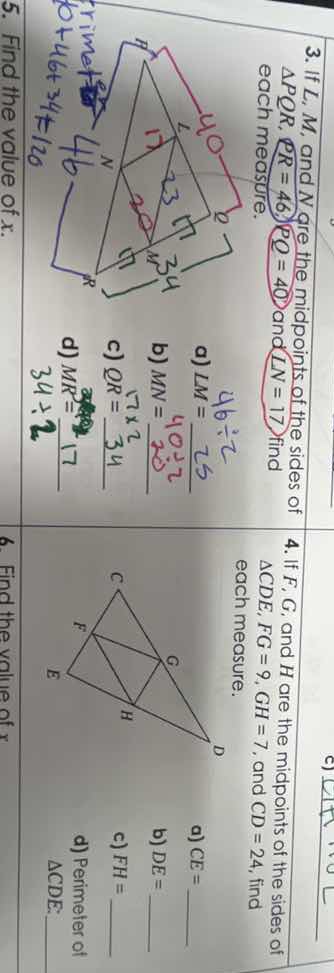 3. If L, M, and N are the midpoints of the sides of
ΔPQR, PR = 46, PQ = 40, and LN = 17, find
each measure.
P
L
Q
M
N
R
40
17
23
20
34
46
rimeter
40+46+34=120
46÷2
a) LM = 25
40÷2
b) MN = 20
17×2
c) QR = 34
d) MR = 17
34÷2
4. If F, G, and H are the midpoints of the sides of
ΔCDE, FG = 9, GH = 7, and CD = 24, find
each measure.
C
G
D
F
H
E
a) CE =
b) DE =
c) FH =
d) Perimeter of
ΔCDE:
5. Find the value of x.
6. Find the value of x
c)